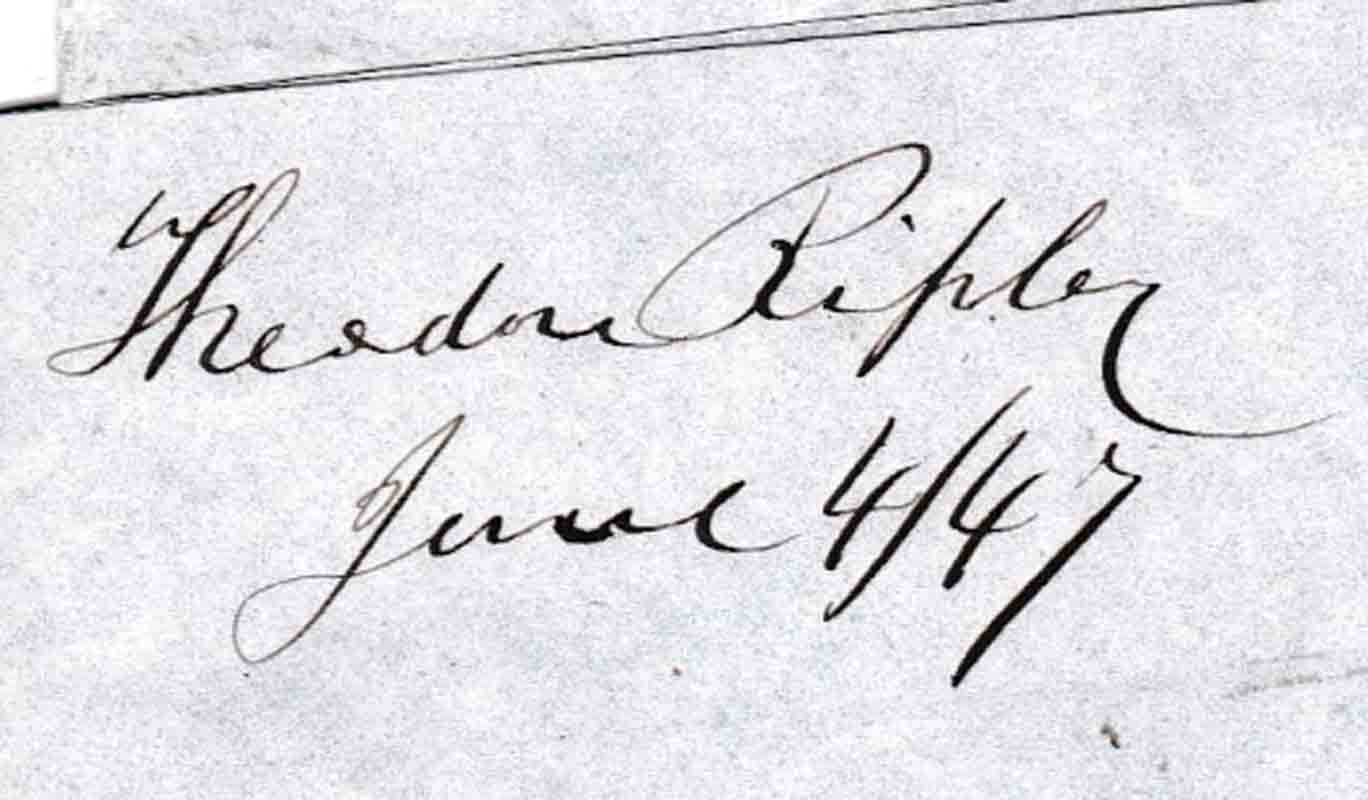 Theodore Ripley
June 4/47